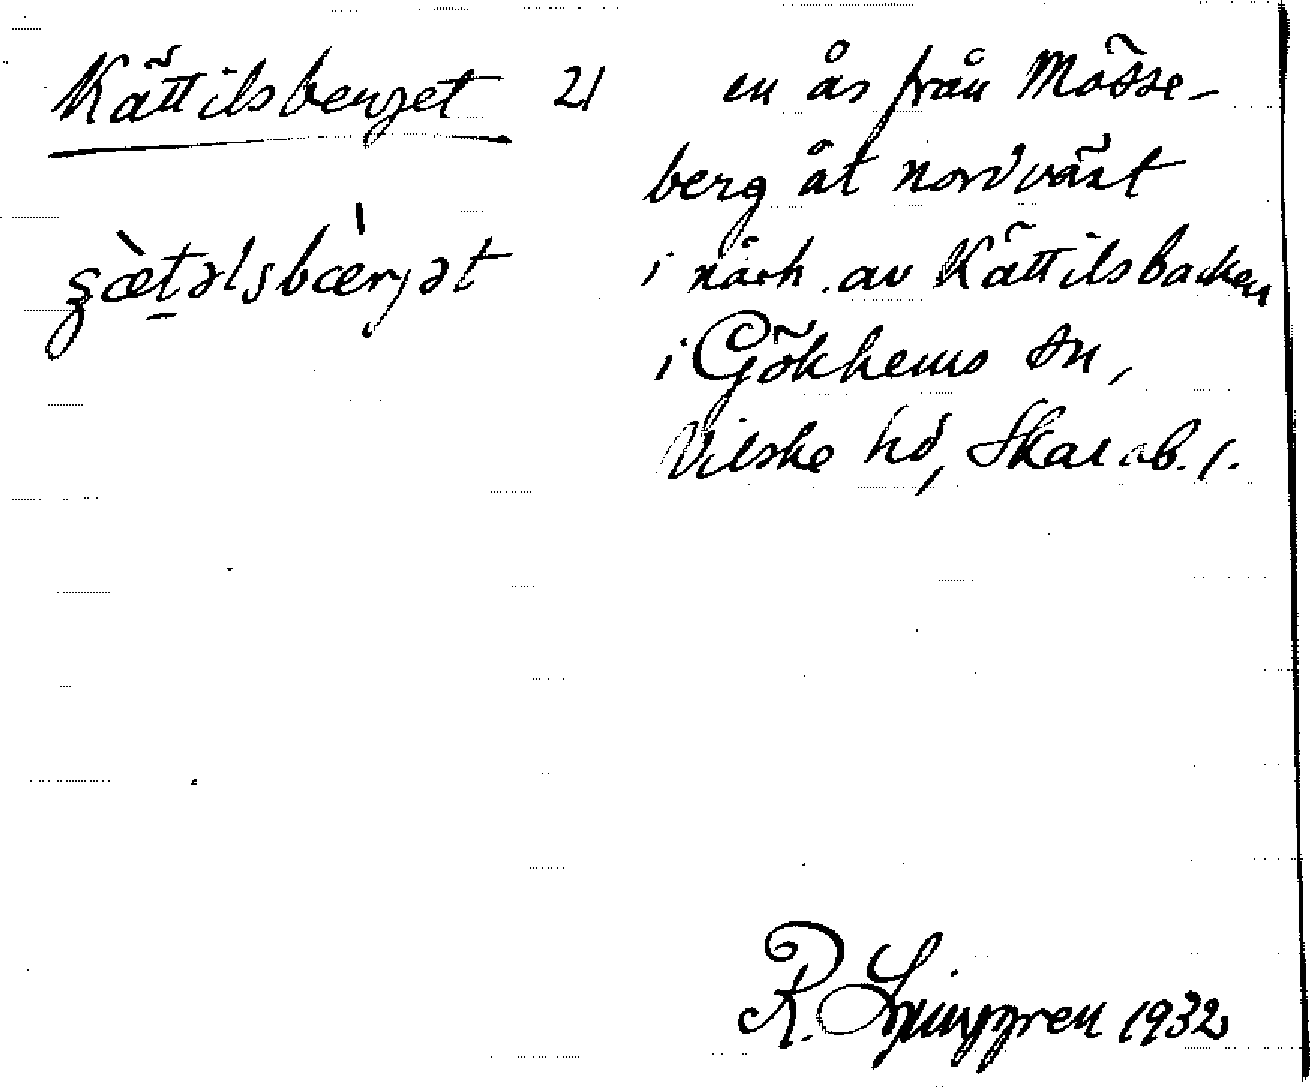 Kättilsberget 21
en ås från Mösse-
berg åt nordväst
i närh. av Kättilsbacken
i Gökhems sn,
Vilske hd, Skarab. l.
R. Ljunggren 1932